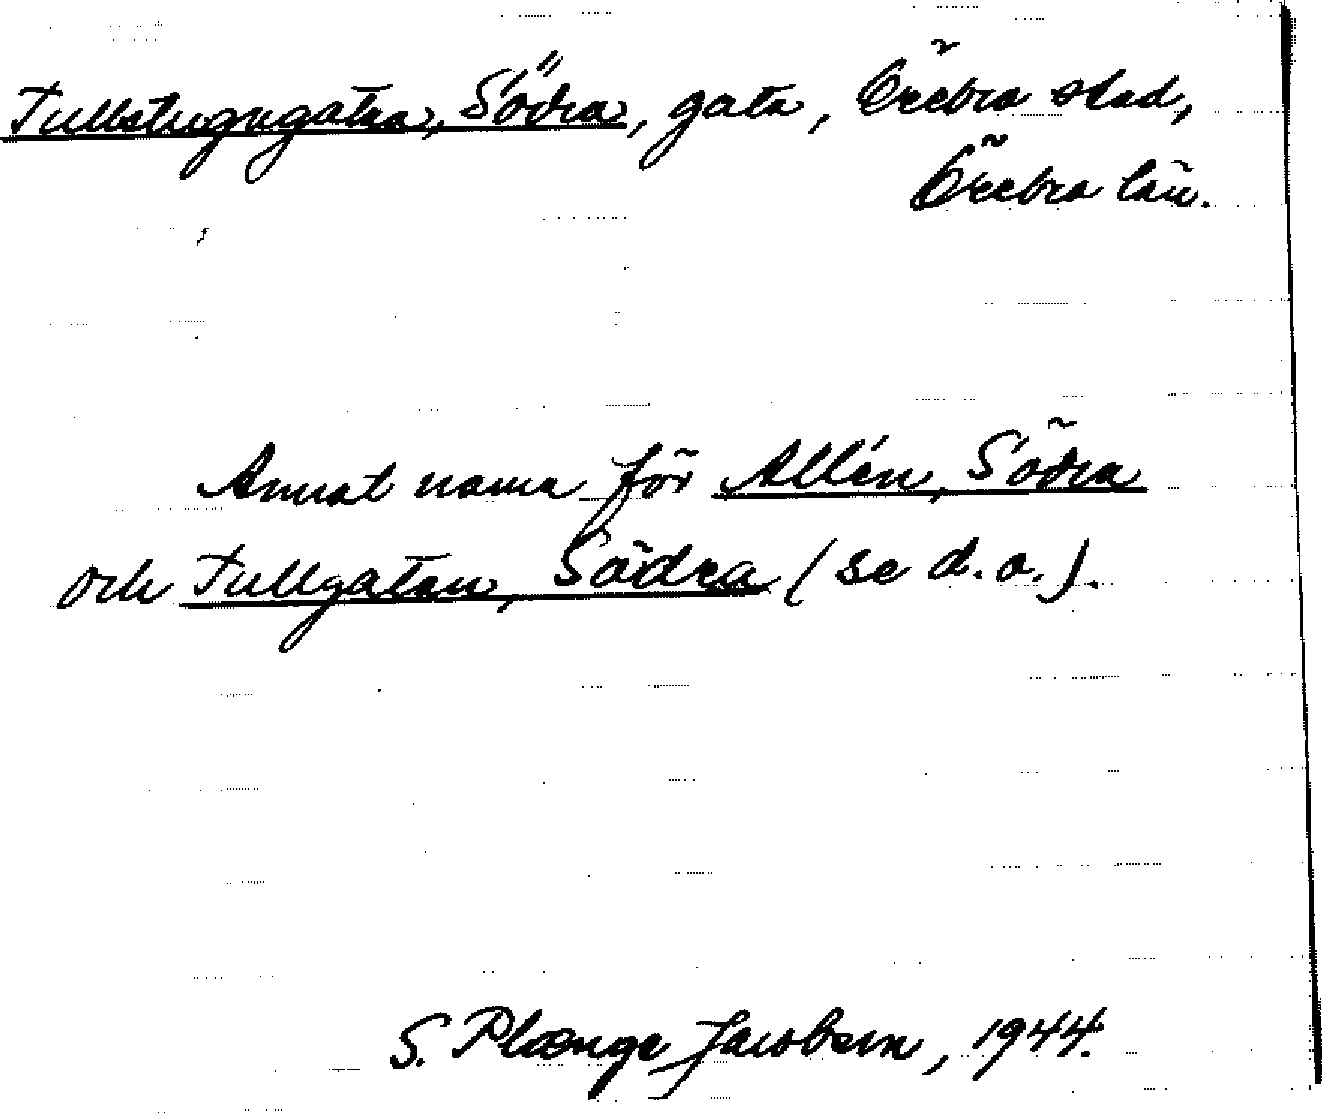 Tullstugugatan, Södra, gata, Örebro stad,
Örebro län.
Annat namn för Allén, Södra
och Tullgatan, Södra (se d.o.).
S. Plænge Jacobson, 1944.